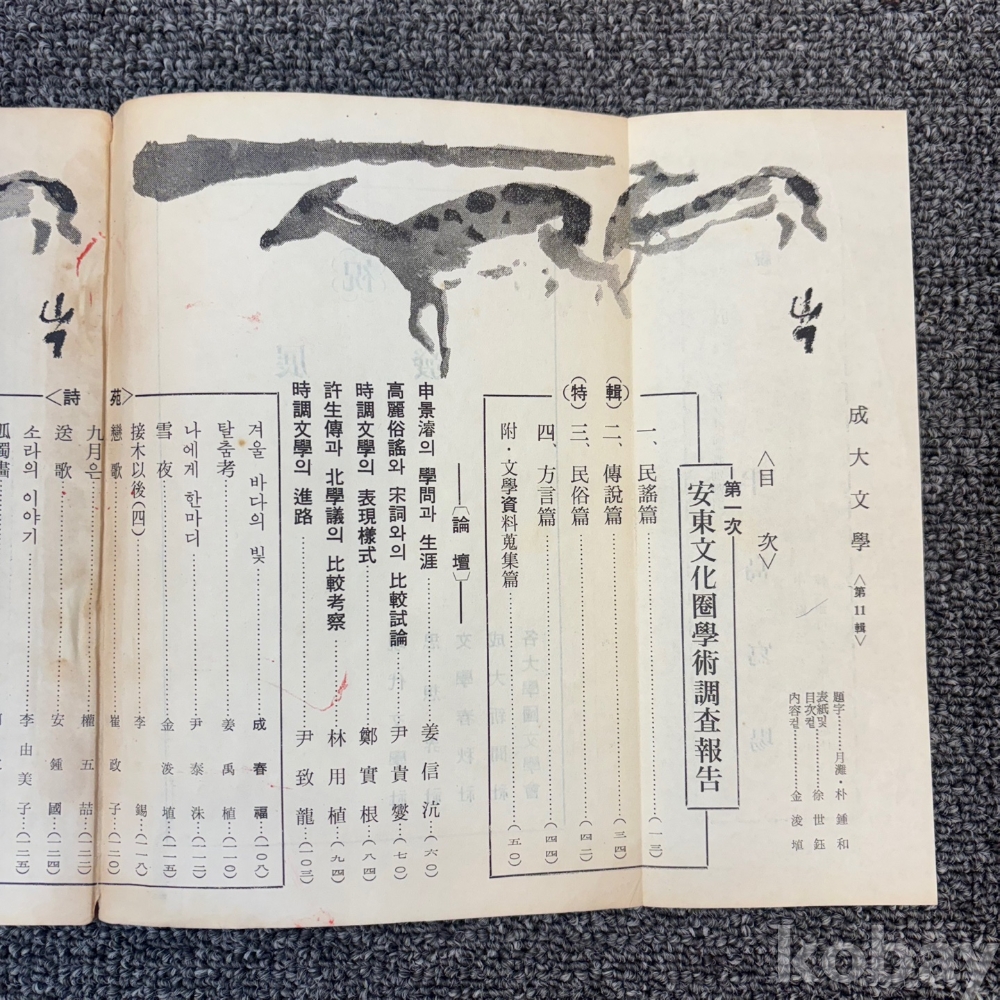 成大文學 〈第11輯〉
題字……月灘·朴鍾和
表紙및
目次컽……徐世鈺
內容컽……金浚埴
〈目次〉
第一次
安東文化圈學術調査報告
(特輯)
一、民謠篇……(一三)
二、傳說篇……(三四)
三、民俗篇……(四二)
四、方言篇……(四四)
附·文學資料蒐集篇……(五0)
論壇
申景濬의 學問과 生涯……姜信沆(六0)
高麗俗謠와 宋詞와의 比較試論……尹貴燮(七0)
時調文學의 表現樣式……鄭實根(八四)
許生傳과 北學議의 比較考察……林用植(九四)
時調文學의 進路……尹致龍(一0三)
〈詩苑〉
겨울 바다의 빛……成春福(一0八)
탈춤考……姜禹植(一一0)
나에게 한마디……尹泰洙(一一二)
雪夜……金浚埴(一一五)
接木以後(四)……李錫(一一八)
戀歌……崔政子(一二0)
九月은……權五喆(一二二)
送歌……安鍾國(一二四)
소라의 이야기……李由美子(一二五)
孤獨畵
kobay